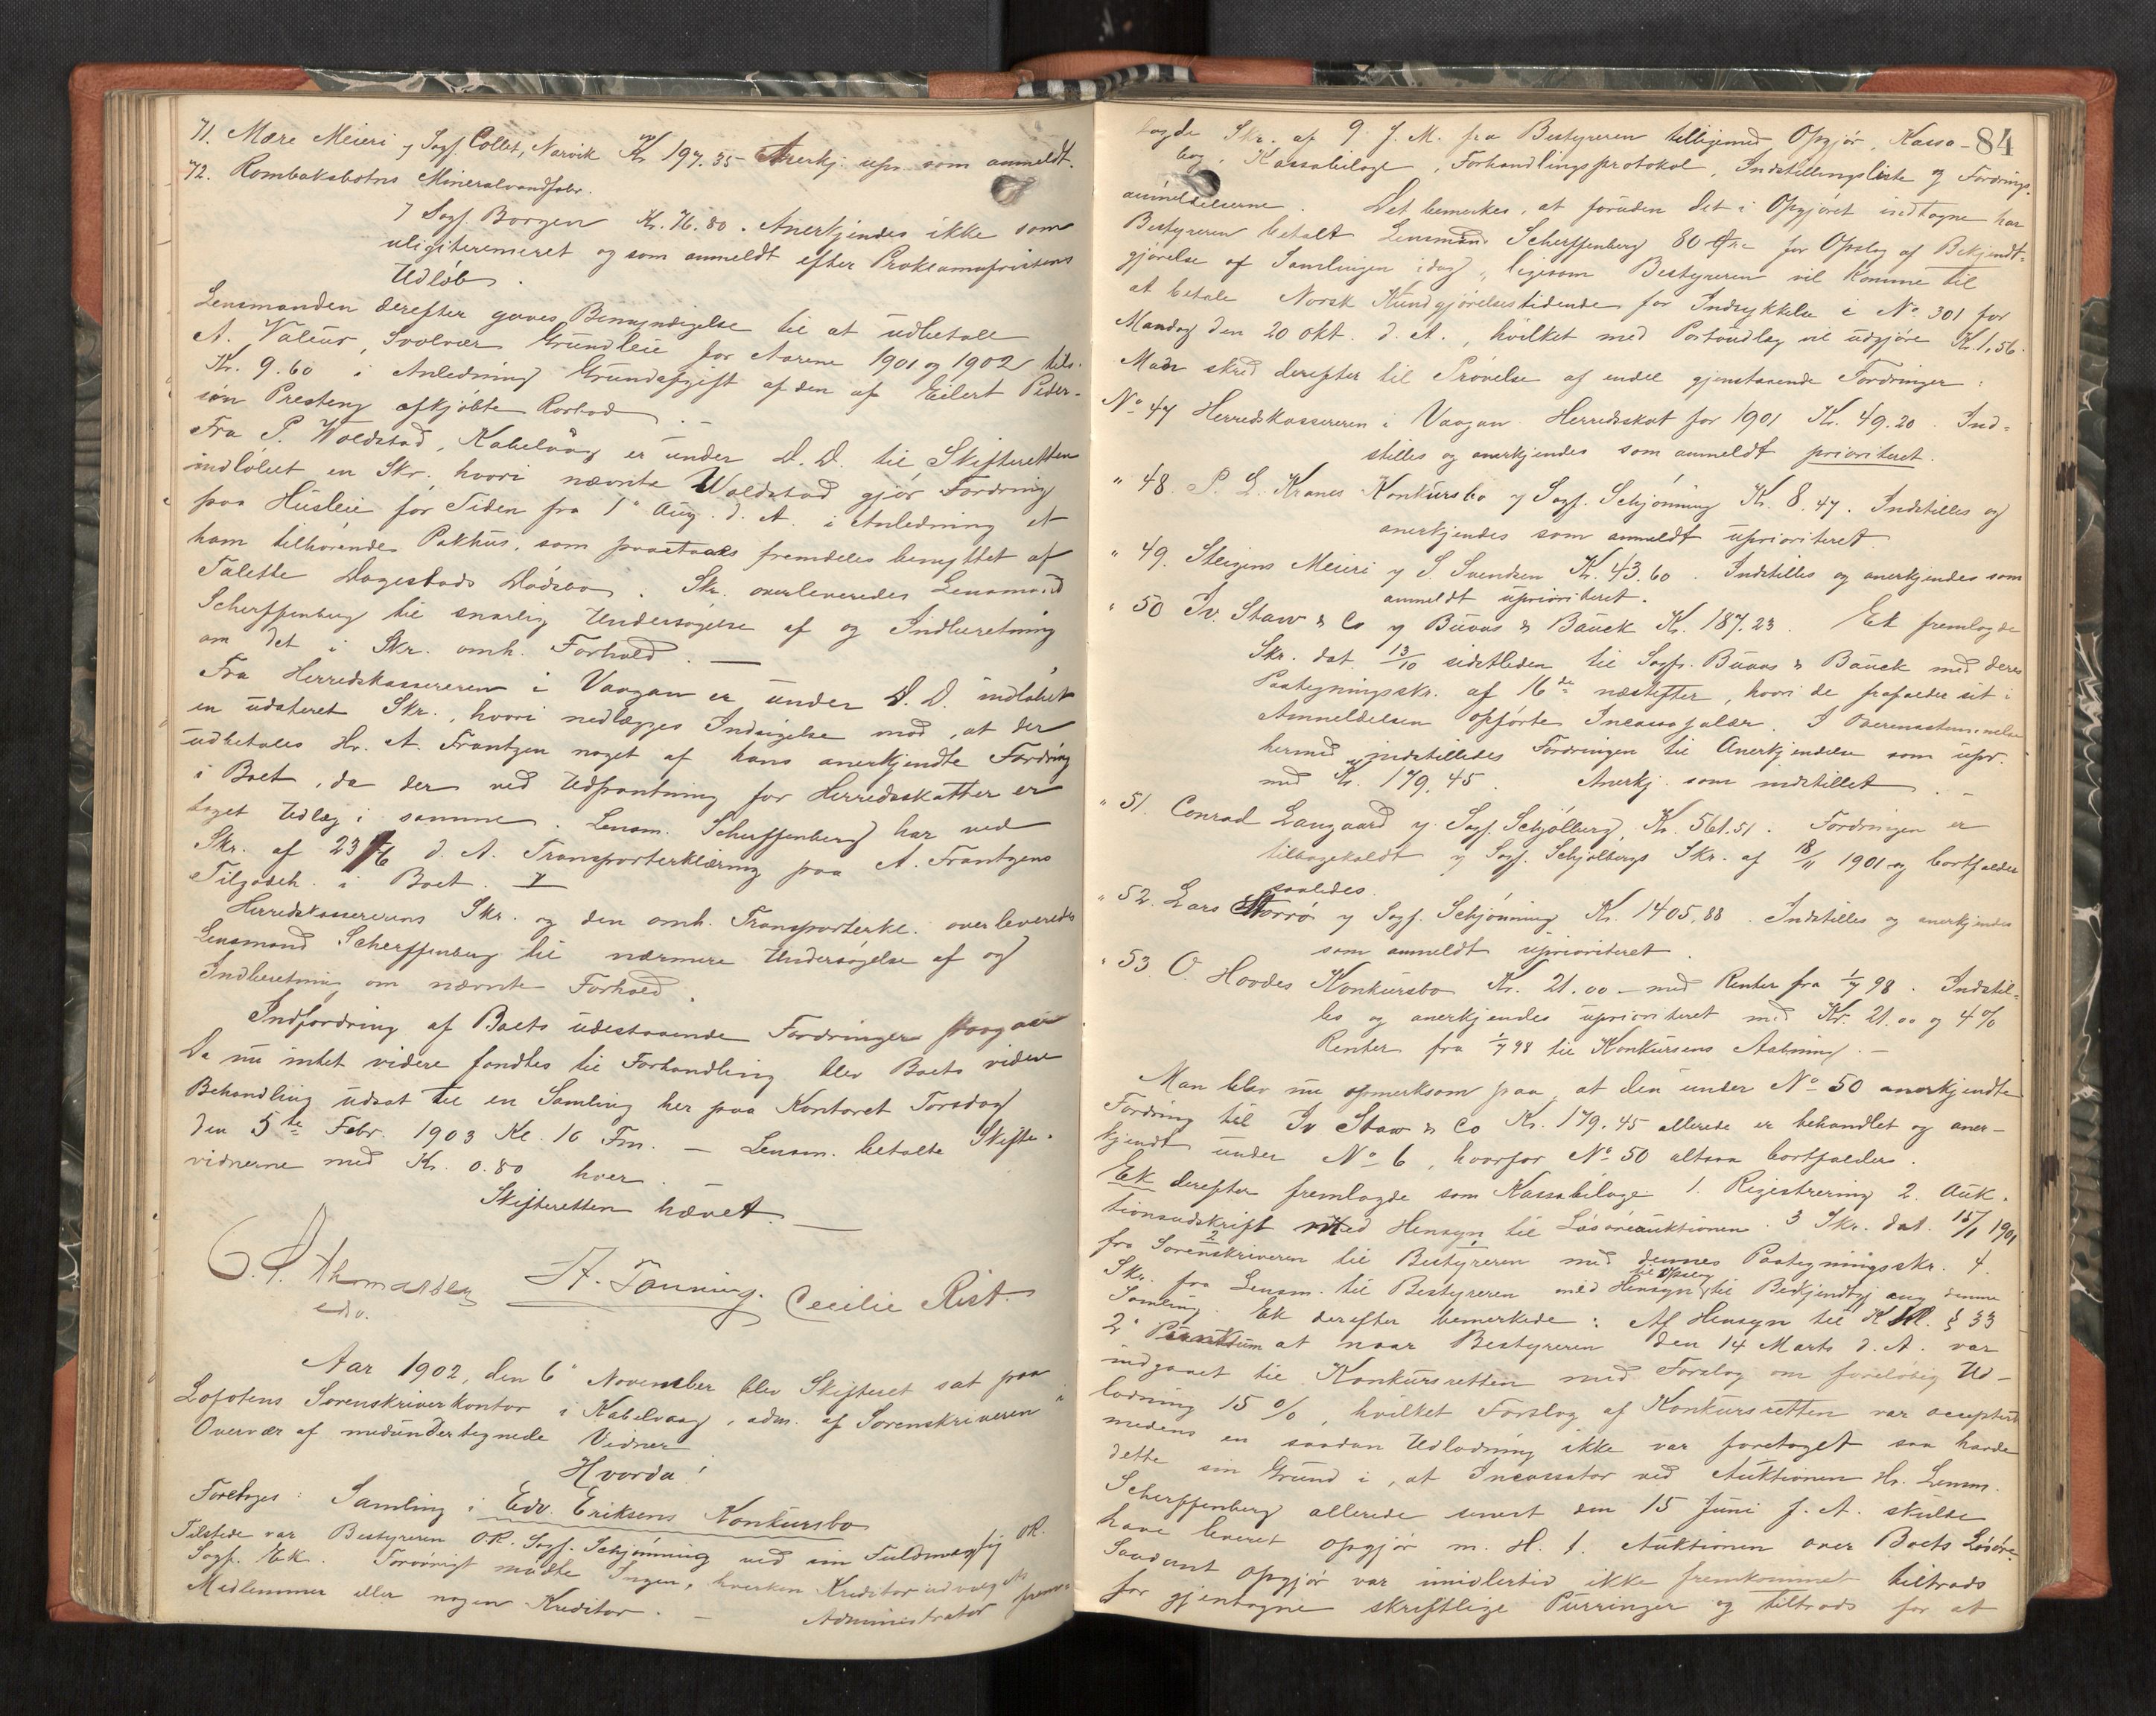 71. Mære Meieri y Sagf. Collet, Narvik Kr 197.35 - Anerkj. upr. som anmeldt.
72. Rombaksbotns Mineralvandfabr.
y Sagf. Borgen Kr. 76.80. Anerkjendes ikke som
uligitermeret og som anmeldt efter Proklamafristens
Udløb.
Lensmanden derefter gaves Bemyndigelse til at udbetale
A. Valeur, Svolvær Grundleie for Aarene 1901 og 1902 tils.
Kr. 9.60 i Anledning Grundafgift af den af Eilert Peder-
søn Presteng afkjøbte Rorbod. -
Fra P. Woldstad, Kabelvaag er under D.D. til Skifteretten
indløbet en Skr. hvori nævnte Woldstad gjør Fordring
paa Husleie for Tiden fra 1° Aug. d. A. i Anledning et
ham tilhørende Pakhus, som paastaaes fremdeles benyttet af
Talette Dagestads Dødsbo. Skr. overleveredes Lensmand
Scherffenberg til snarlig Undersøgelse af og Indberetning
om det i Skr. omh. Forhold. -
Fra Herredskassereren i Vaagan er under D.D. indløbet
en udateret Skr., hvori nedlægges Indsigelse mod, at der
udbetales Hr. A. Frantzen noget af hans anerkjendte Fordring
i Boet, da der ved Udpantning for Herredsskatter er
taget Udlæg i samme. Lensm. Scherffenberg har ved
Skr. af 23/6 d. A. Transporterklæring paa A. Frantzens
Tilgodeh. i Boet.
Herredskassererens Skr. og den omh. Transporterkl. overleveredes
Lensmand Scherffenberg til nærmere Undersøgelse af og
Indberetning om nævnte Forhold.
Indfordring af Boets udestaaende Fordringer paagaar
Da nu intet videre fandtes til Forhandling blev Boets videre
Behandling udsat til en Samling her paa Kontoret Torsdag
den 5te Febr. 1903 Kl. 10 Fm. - Lensm. betalte Skifte-
vidnerne med Kr. 0.80 hver. -
Skifteretten hævet. -
Thomassen A. Fanning. Cecilie Rist.
edv.
Aar 1902, den 6° November blev Skifteret sat paa
Lofotens Sorenskriverkontor i Kabelvaag, adm. af Sorenskriveren i
Overvær af medundertegnede Vidner
Hvorda:
Foretoges: Samling i Edv. Eriksens Konkursbo
Tilstede var Bestyreren OR. Sagf. Schjønning ved sin Fuldmægtig OR.
Sagf. Ek. Forøvrigt mødte Ingen, hverken Kreditorudvalgets
Medlemmer eller nogen Kreditor. - Administrator frem-
84
lagde Skr. af 9. f. M. fra Bestyreren tilligemed Opgjør, Kassa-
bog, Kassabilage, Forhandlingsprotokol, Indstillingsliste og Fordrings-
anmeldelserne. Det bemerkes, at foruden det i Opgjøret indtagne har
Bestyreren betalt Lensmand Scherffenberg 80 Øre for Opslag af Bekjendt-
gjørelse af Samlingen idag, ligesom Bestyreren vil komme til
at betale Norsk Kundgjørelsestidende for Indrykkelse i No 301 for
Mandag den 20 okt. d. A., hvilket med Portoudlæg vil udgjøre Kr. 1,56.
Man skred derefter til Prøvelse af endel gjenstaaende Fordringer:
No 47 Herredskassereren i Vaagan Herredskat for 1901 Kr. 49.20. Ind-
stilles og anerkjendes som anmeldt prioriteret.
" 48. P. L. Kranes Konkursbo y Sagf. Schjønning Kr. 8.47. Indstilles og
anerkjendes som anmeldt uprioriteret.
" 49. Steigens Meieri y S. Svendsen Kr. 43.60. Indstilles og anerkjendes som
anmeldt uprioriteret.
" 50 Iv. Staw & Co y Buaas & Bauck Kr. 187.23. Ek fremlagde
Skr. dat. 13/10 sidstleden til Sagf. Buaas & Bauck med deres
Paategningsskr. af 16de næstefter, hvori de frafalder sit i
Anmeldelsen opførte Incassosalær. I Overensstemmelse
hermed indstilledes Fordringen til Anerkjendelse som upr.
med Kr. 179.45. Anerkj. som indstillet. -
" 51. Conrad Langaard y Sagf. Schjølberg, Kr. 561.51. Fordringen er
tilbagekaldt y Sagf. Schjølbergs Skr. af 18/11 1901 og bortfalder
saaledes.
" 52. Lars Storrø y Sagf. Schjønning Kr. 1405,88. Indstilles og anerkjendes
som anmeldt uprioriteret.
" 53. O. Hovdes Konkursbo Kr. 21.00 - med Renter fra 1/7 98. Indstil-
les og anerkjendes uprioriteret med Kr. 21.00 og 4%
Renter fra 1/7 98 til Konkursens Aabning. -
Man blev nu opmerksom paa, at den under No 50 anerkjendte
Fordring til Iv Staw & Co Kr. 179.45 allerede er behandlet og aner-
kjendt under No 6, hvorfor No 50 altsaa bortfalder.
Ek derefter fremlagde som Kassabilage 1. Registrering 2. Auk-
tionsudskrift med Hensyn til Løsøreauktionen. 3 Skr. dat. 15/1 1901
fra Sorenskriveren til Bestyreren med dennes Paategningsskr. 4.
Skr. fra Lensm. til Bestyreren med Hensyn til Opslag til Bekjendtgj ang denne
Samling. Ek derefter bemerkede: Af Hensyn til K.L. § 33
2° Punktum at naar Bestyreren den 14 Marts d. A. var
indgaaet til Konkursretten med Forslag om foreløbig Ud-
lodning 15 %, hvilket Forslag af Konkursretten var acceptert
medens en saadan Udlodning ikke var foretaget saa havde
dette sin Grund i, at Incassator ved Auktionen Hr. Lensm.
Scherffenberg allerede senest den 15 Juni f. A. skulde
have leveret opgjør m. H. t. Auktionen over Boets Løsøre.
Saadant opgjør var imidlertid ikke fremkommet tiltrods
for gjentagne skriftlige Purringer og tiltrods for at